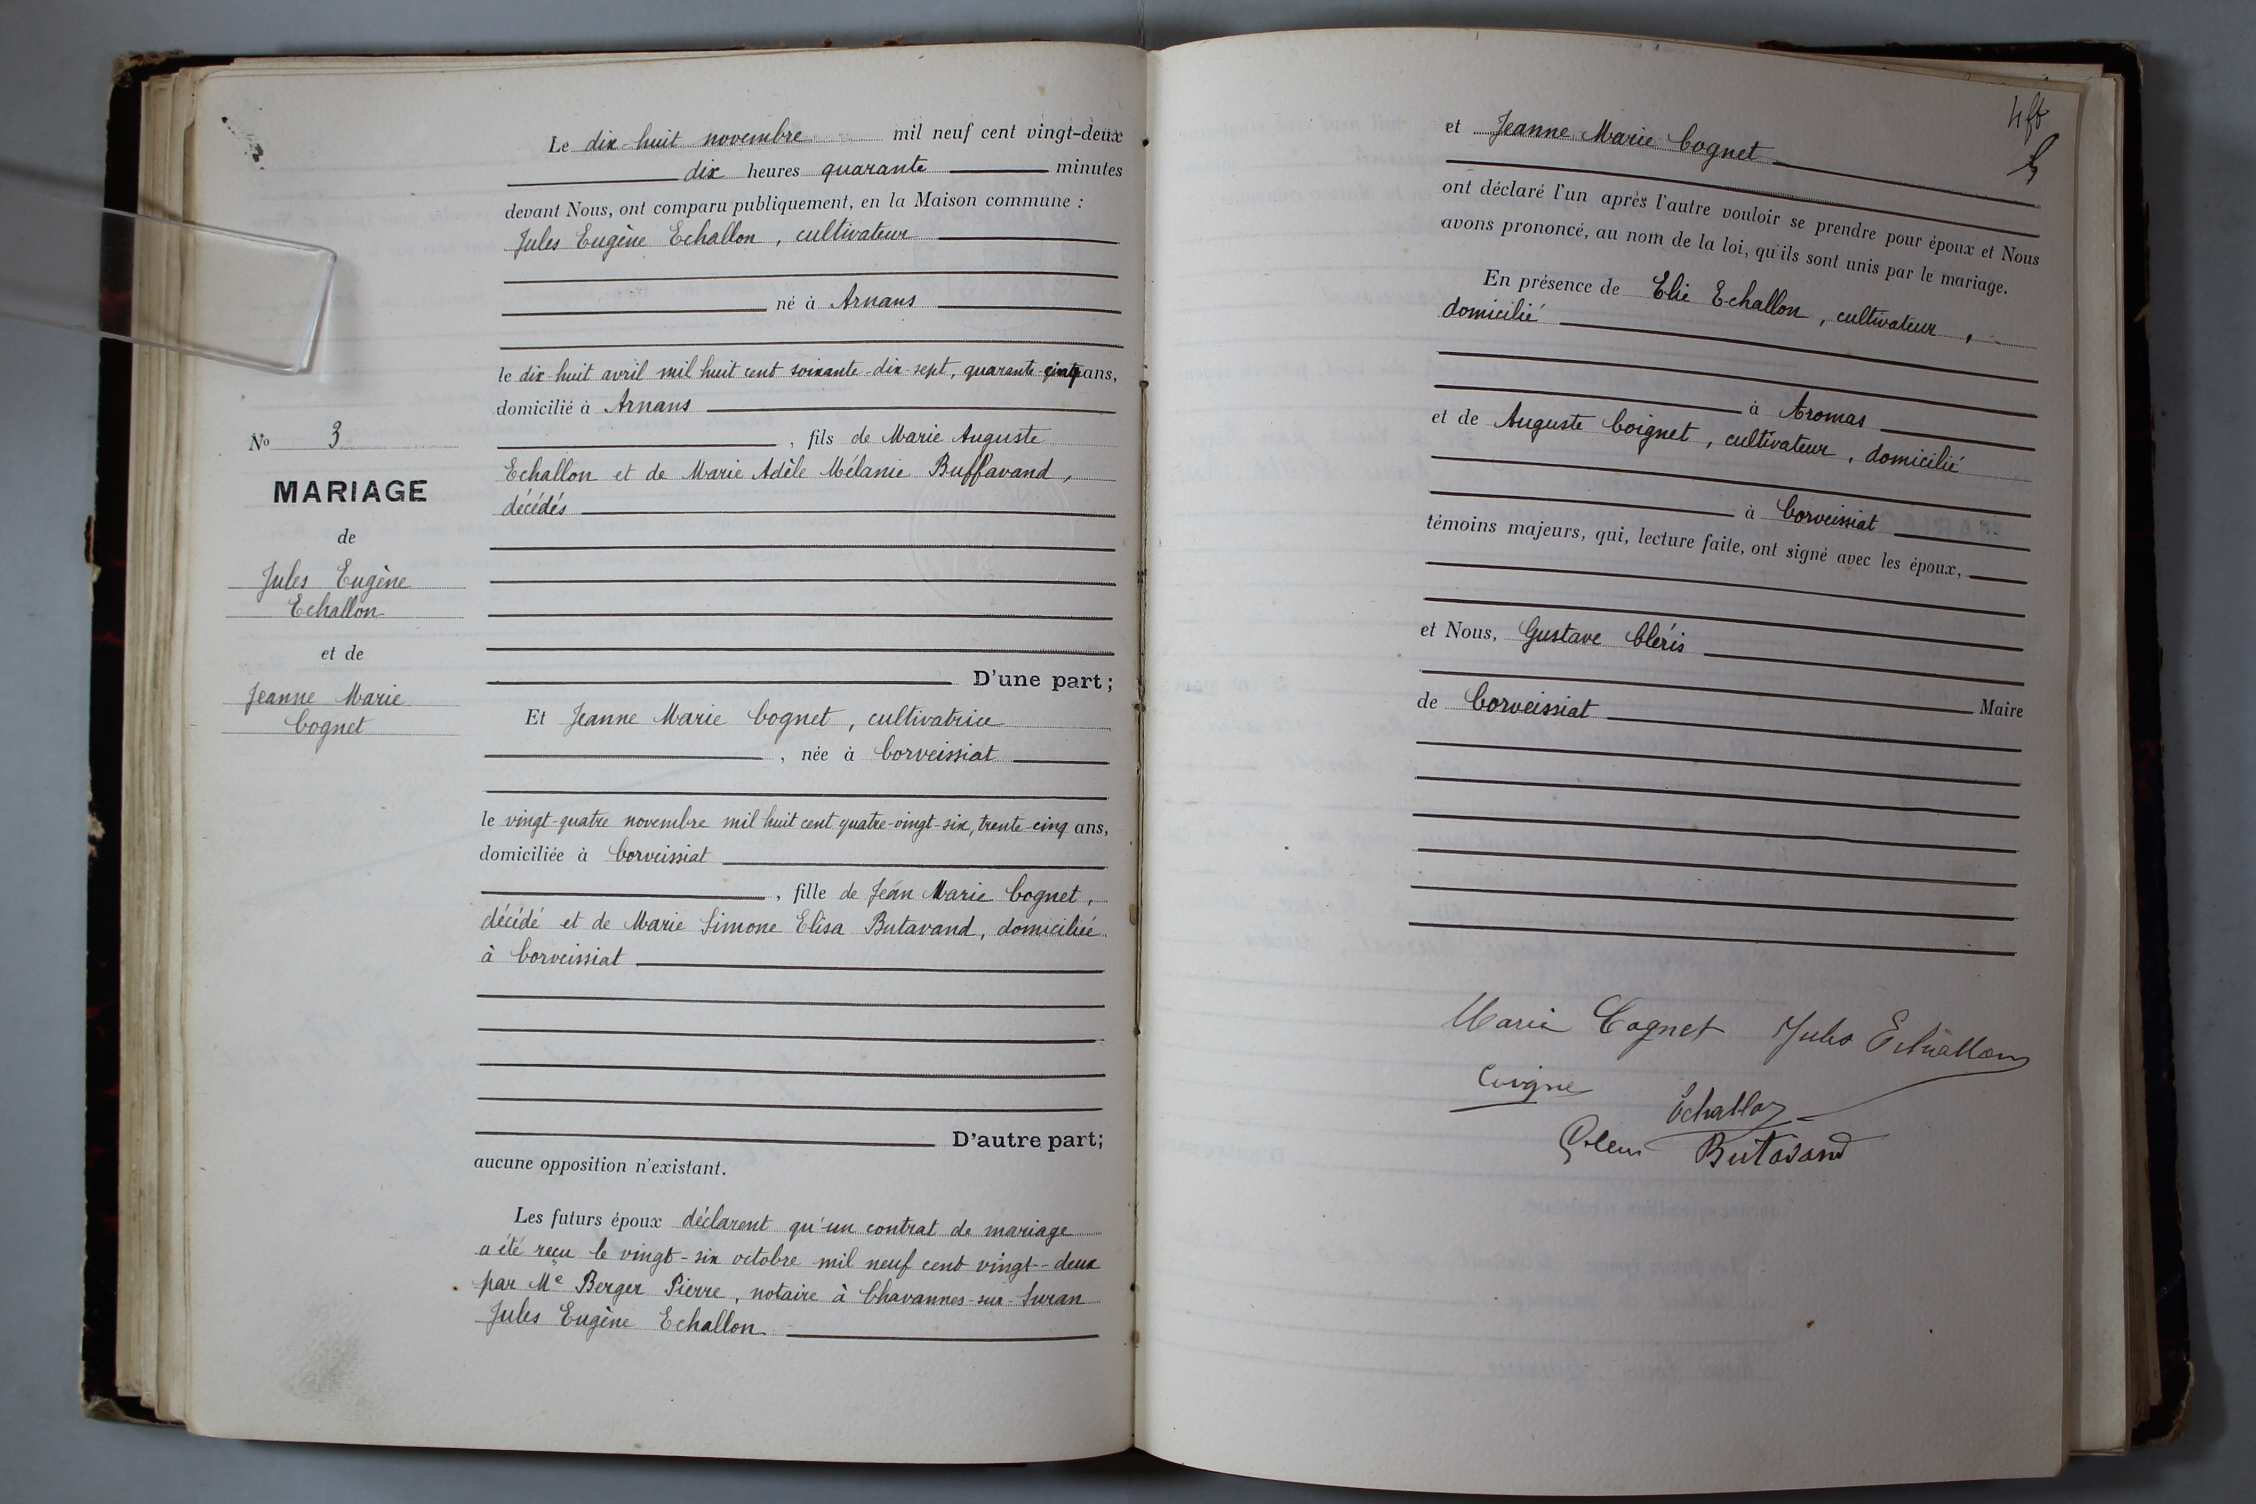 Le dix-huit novembre mil neuf cent vingt-deux
dix heures quarante minutes
devant Nous, ont comparu publiquement, en la Maison commune :
Jules Eugène Echallon, cultivateur
né à Arnans
le dix-huit avril mil huit cent soixante-dix-sept, quarante-cinq ans,
domicilié à Arnans
, fils de Marie Auguste
Echallon et de Marie Adèle Mélanie Buffavand,
décédés
D'une part;
N° 3
MARIAGE
de
Jules Eugène
Echallon
et de
Jeanne Marie
Cognet
Et Jeanne Marie Cognet, cultivatrice
, née à Corveissiat
le vingt-quatre novembre mil huit cent quatre-vingt-six, trente-cinq ans,
domiciliée à Corveissiat
, fille de Jean Marie Cognet,
décédé et de Marie Simone Elisa Butavand, domiciliée
à Corveissiat
D'autre part;
aucune opposition n'existant.
Les futurs époux déclarent qu'un contrat de mariage
a été reçu le vingt-six octobre mil neuf cent vingt-deux
par Me Berger Pierre, notaire à Chavannes-sur-Suran
Jules Eugène Echallon
et Jeanne Marie Cognet
ont déclaré l'un après l'autre vouloir se prendre pour époux et Nous
avons prononcé, au nom de la loi, qu'ils sont unis par le mariage.
En présence de Elie Echallon, cultivateur,
domicilié
à Aromas
et de Auguste Coignet, cultivateur, domicilié
à Corveissiat
témoins majeurs, qui, lecture faite, ont signé avec les époux,
et Nous, Gustave Cléris
Maire
de Corveissiat
Marie Cognet Jules Echallon
Coigne
Echallon
Butavand